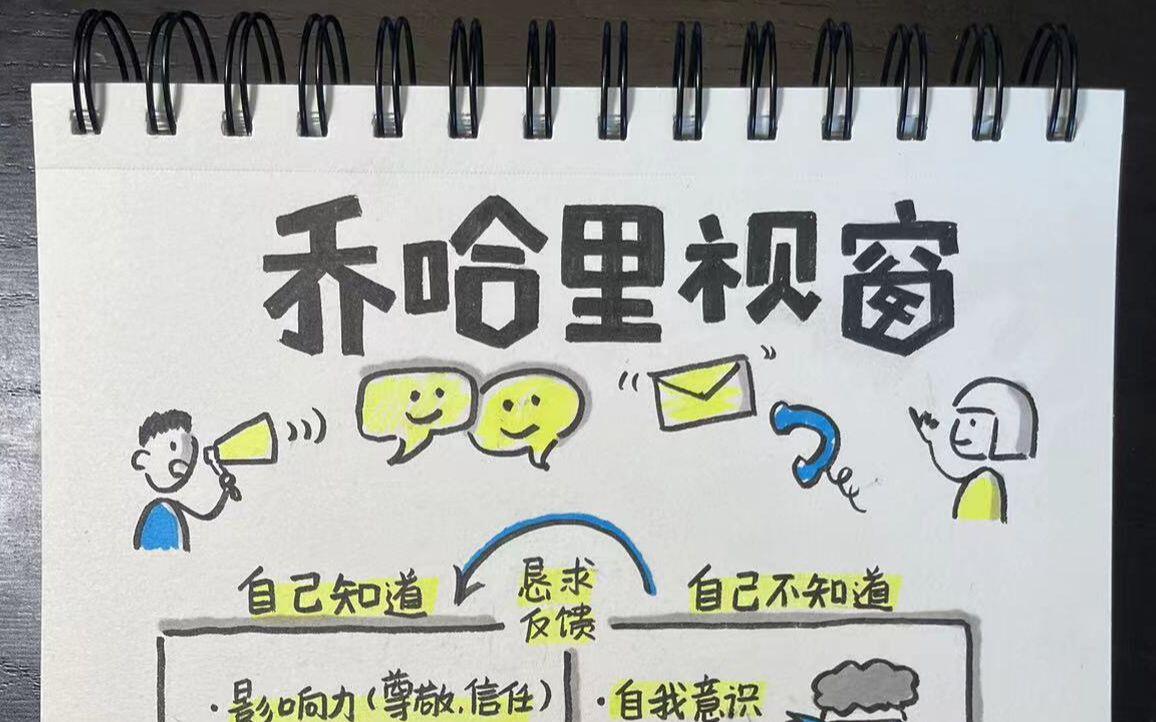 乔哈里视窗
自己知道
恳求
反馈
自己不知道
·影响力(尊敬.信任)
·自我意识